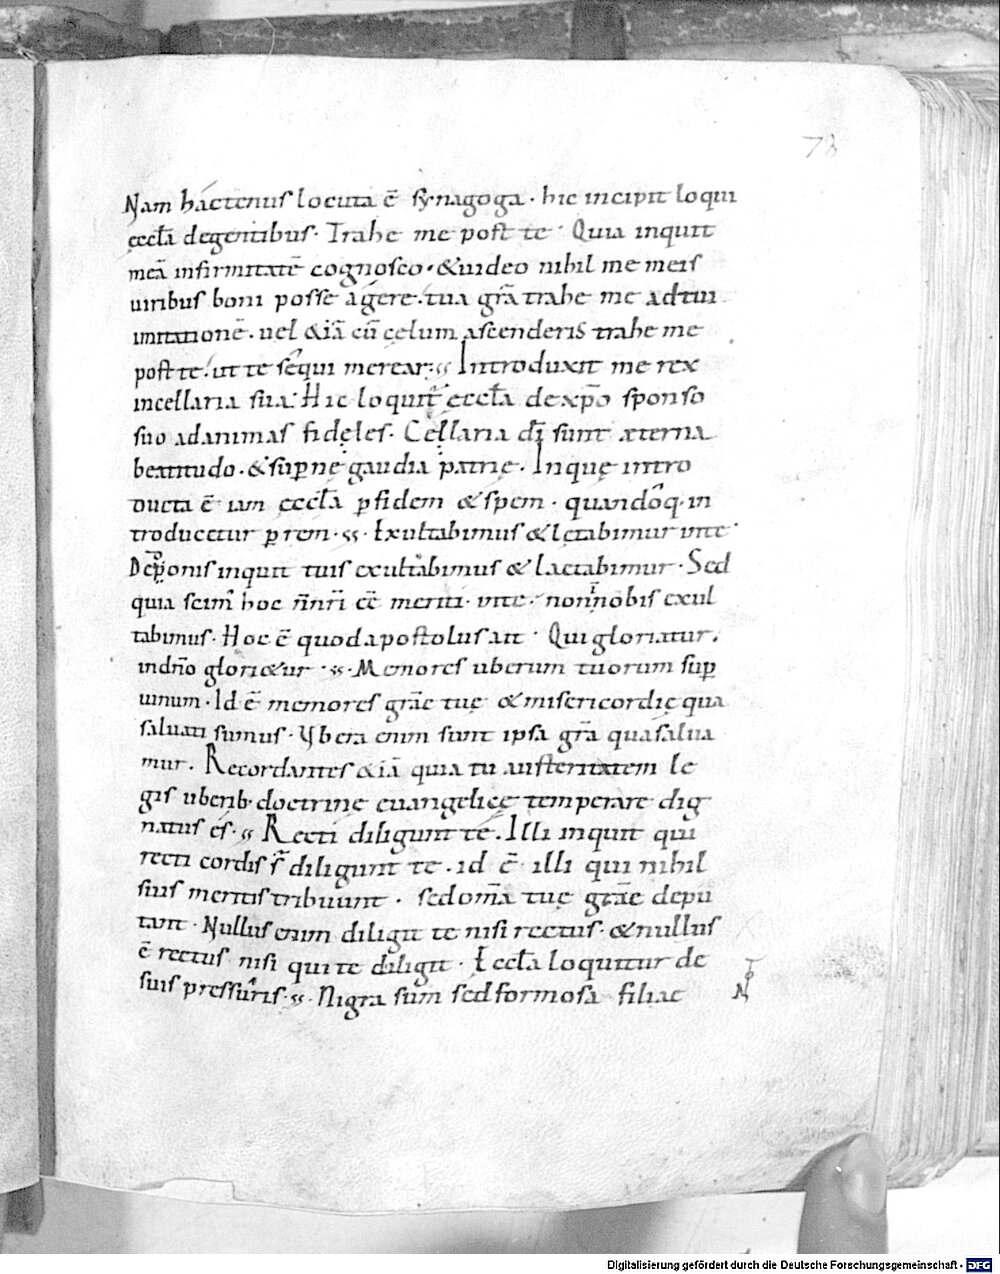 78
Nam hactenus locuta ē synagoga · hic incipit loqui
ęccła degentibus · Trahe me post te · Quia inquit
meā infirmitatē cognosco · & uideo nihil me meis
uiribus boni posse agere · tua gr̄a trahe me ad tui
imitationē · uel &iā cū cęlum ascenderis trahe me
post te · ut te sequi merear · Introduxit me rex
in cellaria sua · Hic loquit̄ ęccła de xp̄o sponso
suo ad animas fideles · Cellaria dī sunt æterna
beatitudo · & sup̄ne gaudia patrię · In quę intro
ducta ē iam ęccła p fidem & spem · quandoq · in
troducetur p rem · Exultabimus & lętabimur in te
De p̄onis inquit tuis exultabimus & laetabimur · Sed
quia scim' hoc n̄ nr̄i eē meriti · in te · non in nobis exul
tabimus · Hoc ē quod apostolus ait · Qui gloriatur ·
in dn̄o glori&ur · Memores uberum tuorum sup
uinum · Id ē memores gr̄ae tuę & misericordię qua
saluati sumus · Vbera enim sunt ipsa gr̄a qua salua
mur · Recordantes &iā quia tu austeritatem le
gis uberib · doctrinę euangelicę temperare dig
natus es · Recti diligunt te · Illi inquit qui
recti cordis s̄ diligunt te · id ē illi qui nihil
suis meritis tribuunt · sed om̄a tuę gr̄ae depu
tant · Nullus enim diligit te nisi rectus · & nullus
ē rectus nisi qui te diligit · Eccła loquitur de
suis pressuris · Nigra sum sed formosa filiae
Digitalisierung gefördert durch die Deutsche Forschungsgemeinschaft - DFG